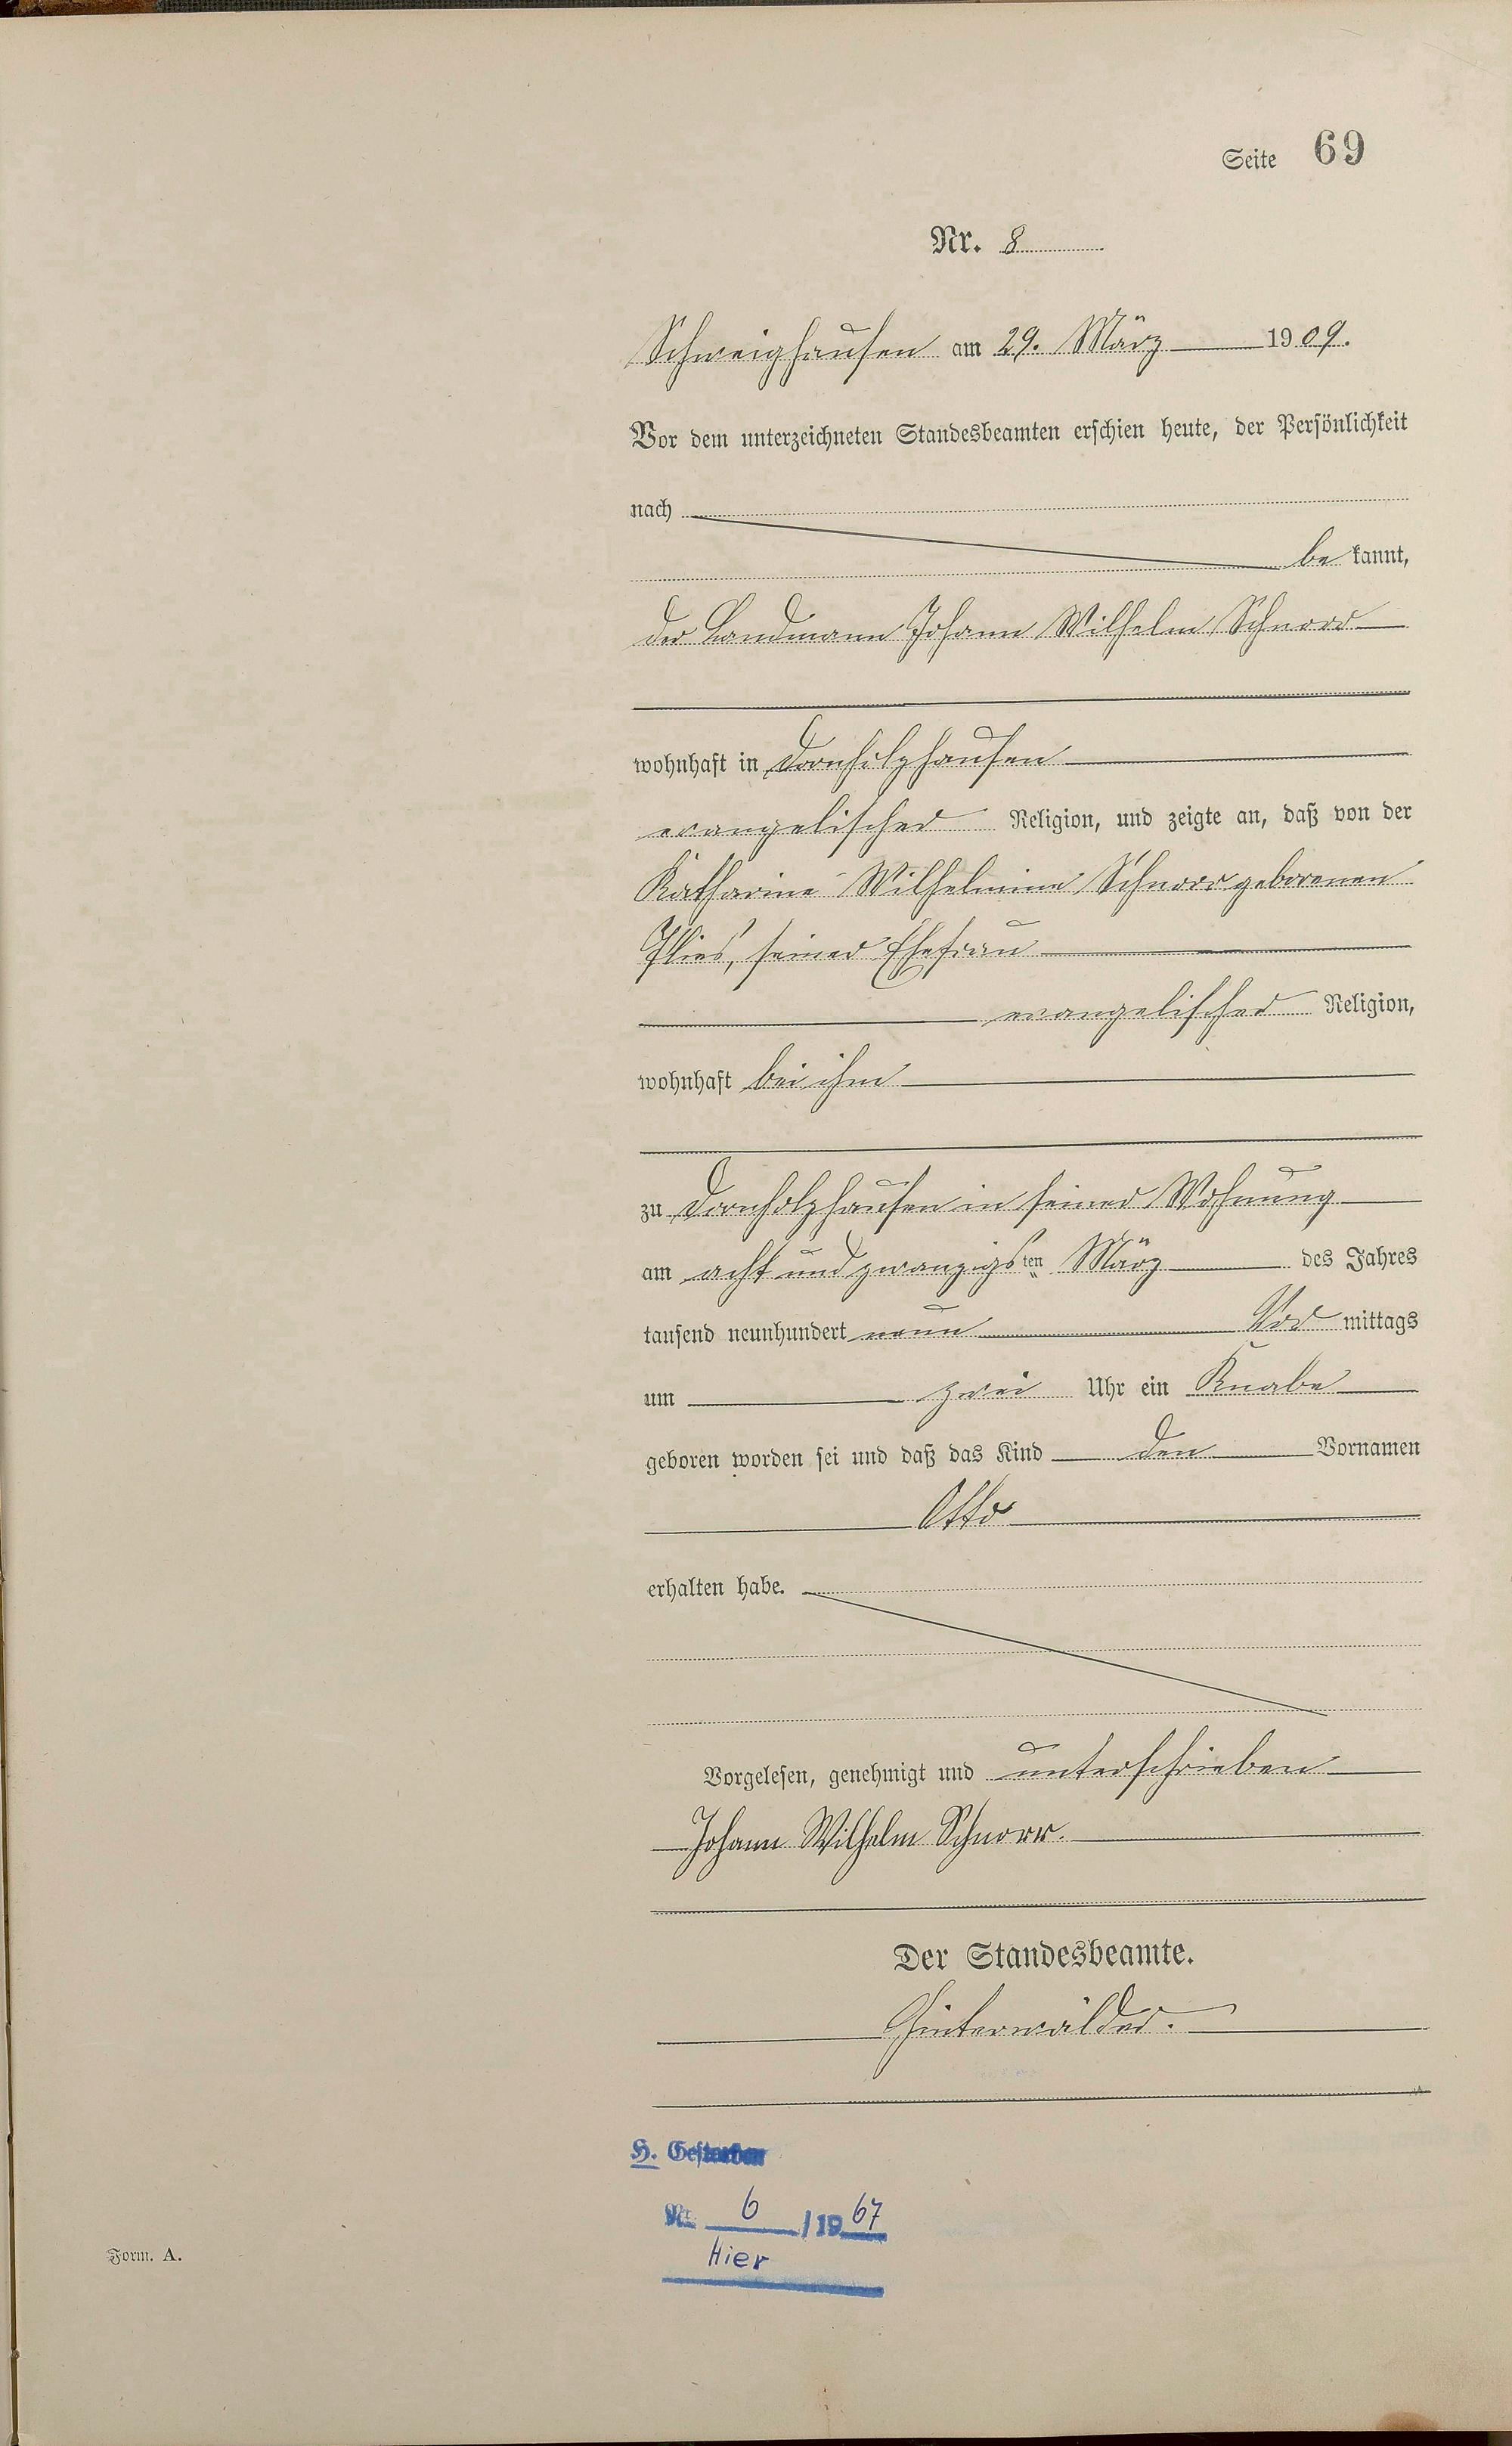 Seite 69
Nr. 8
Schweighausen am 29. März 1909.
Vor dem unterzeichneten Standesbeamten erschien heute, der Persönlichkeit
nach
be kannt,
der Landmann Johann Wilhelm Schnorr
wohnhaft in Dornholzhausen
evangelischer Religion, und zeigte an, daß von der
Katharine Wilhelmine Schnorr geborenen
Plies, seiner Ehefrau
evangelischer Religion,
wohnhaft bei ihm
zu Dornholzhausen in seiner Wohnung
am acht und zwanzigsten März des Jahres
tausend neunhundert neun Vor mittags
um zwei Uhr ein Knabe
geboren worden sei und daß das Kind den Vornamen
Otto
erhalten habe.
Vorgelesen, genehmigt und unterschrieben
Johann Wilhelm Schnorr.
Der Standesbeamte.
Hinterwälder.
H. Gestorben
Nr. 6 /1967
Hier
Form. A.